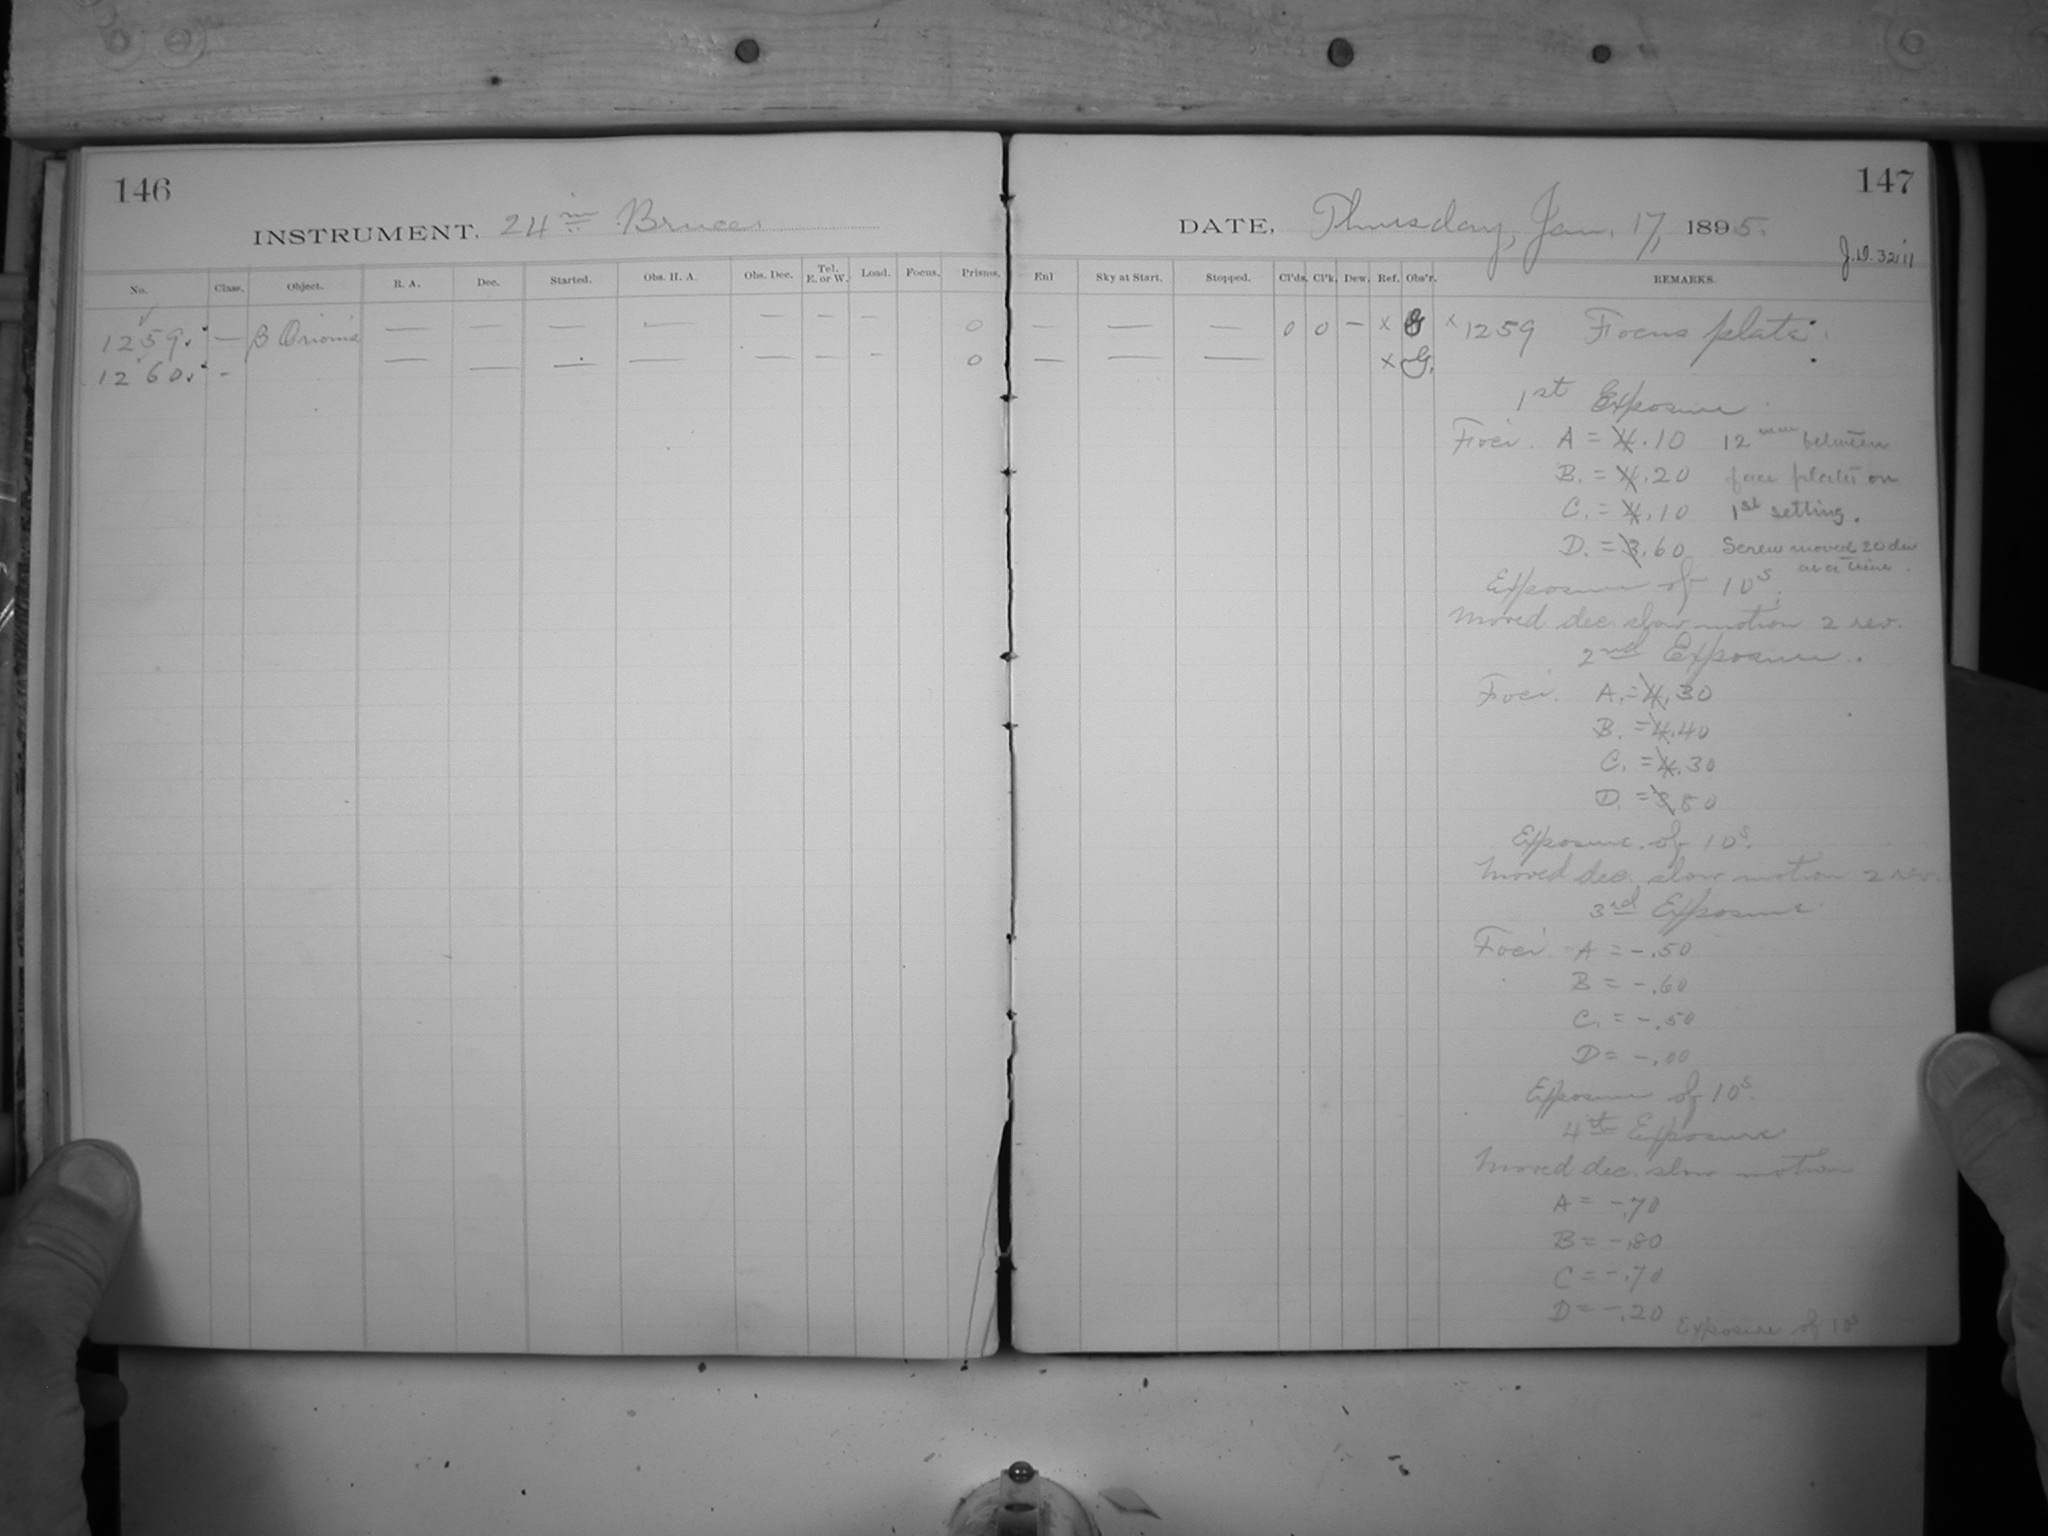 146
INSTRUMENT. 24 in Bruce.
No. Class. Object. R. A. Dec. Started. Obs. H. A. Obs. Dec. Tel. E. or W. Load. Focus. Prisms.
1259. — β Orionis — — — — — — — 0
1260. - — — — — — — - 0
147
DATE, Thursday, Jan. 17, 1895.
J.D. 32111
Enl Sky at Start. Stopped. Cl'ds. Cl'k. Dew. Ref. Obs'r. REMARKS.
— — — 0 0 — x G x 1259 Focus plate.
— — — x G.
1st Exposure
Foci. A = 4.10 12 mm between
B. = 4.20 face plates on
C. = 4.10 1st setting.
D. = 3.60 Screw moved 20 div
at a time.
Exposure of 10s.
Moved dec. slow motion 2 rev.
2nd Exposure.
Foci. A. = 4.30
B. = 4.40
C. = 4.30
D. = 3.80
Exposure of 10s.
Moved dec. slow motion 2 rev.
3rd Exposure
Foci A = -.50
B = -.60
C. = -.50
D = -.00
Exposure of 10s.
4th Exposure
Moved dec. slow motion
A = -.70
B = -.80
C = -.70
D = -.20 Exposure of 10s